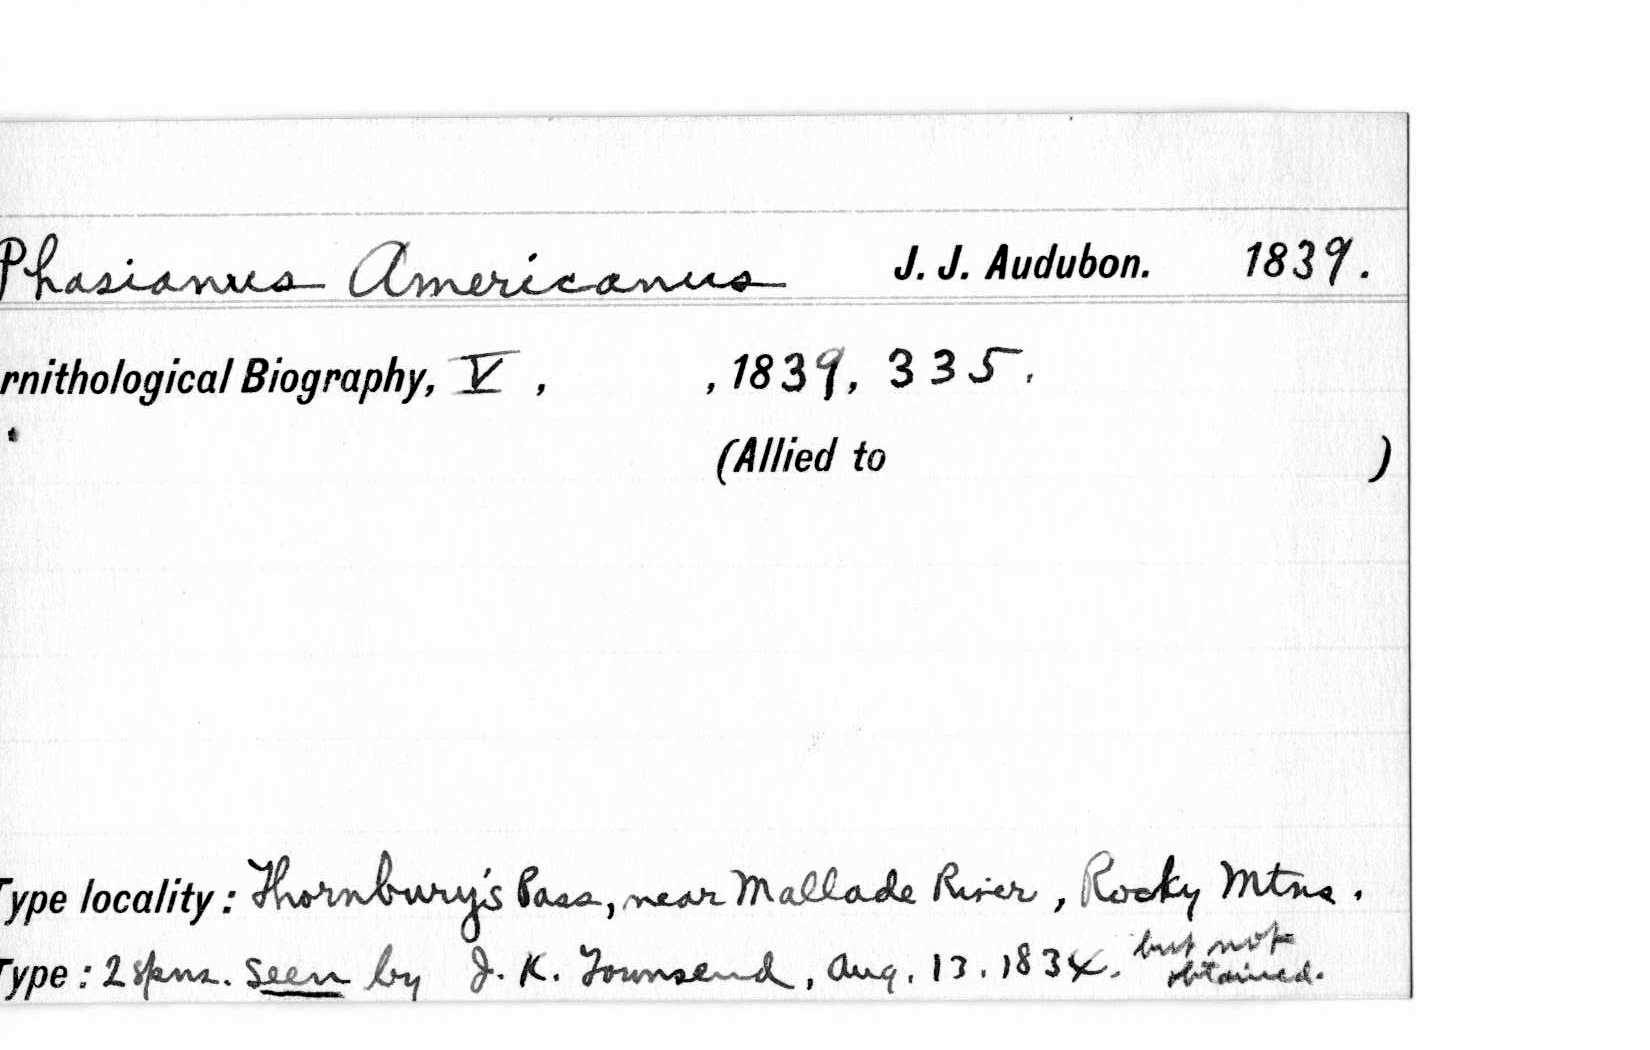 Phasianus Americanus J. J. Audubon. 1839.
rnithological Biography, V, , 1839, 335.
(Allied to )
Type locality: Thornbury's Pass, near Mallade River, Rocky Mtns.
Type: 2 spns. seen by J. K. Townsend, Aug. 13. 1834. but not
obtained.